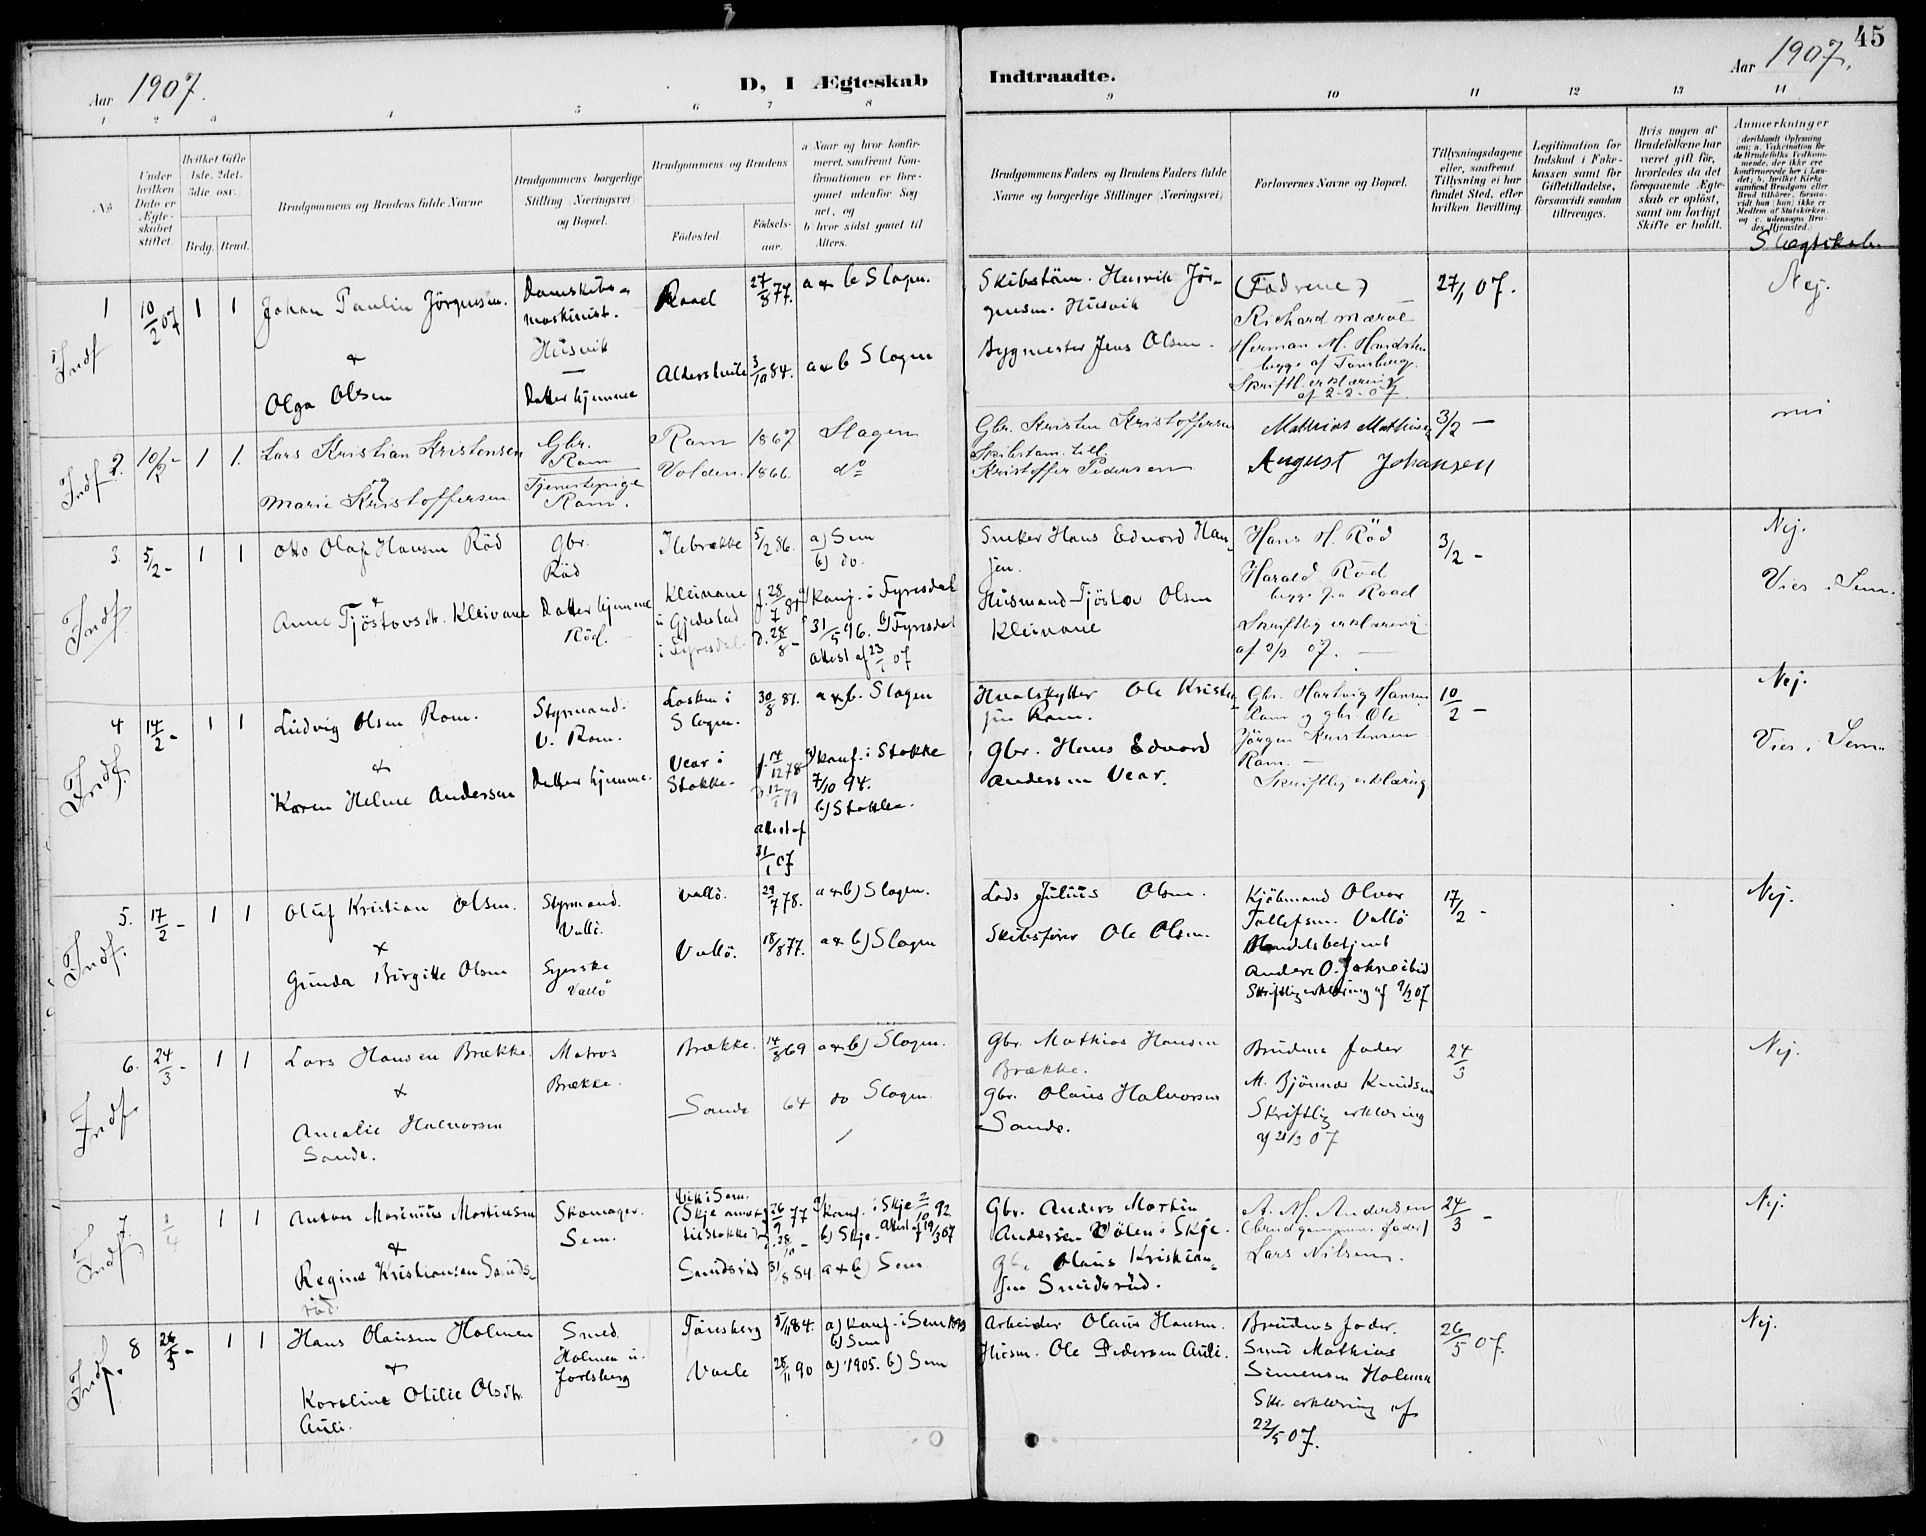 45
Aar 1907.
D, I Ægteskab
Indtraadte.
Aar 1907.
1 2 3 4 5 6 7 8
9 10 11 12 13 14
No
Under hvilken Dato er Ægteskabet stiftet.
Hvilket Gifte 1ste, 2det, 3die osv.)
Brdg. Brud.
Brudgommens og Brudens fulde Navne
Brudgommens borgerlige Stilling (Næringsvei) og Bopæl.
Brudgommens og Brudens
Fødested.
Fødsels-aar.
a Naar og hvor konfirmeret, saafremt Konfirmationen er foregaaet udenfor Sognet, og
b hvor sidst gaaet til Alters.
Brudgommens Faders og Brudens Faders fulde Navne og borgerlige Stillinger (Næringsvei)
Forlovernes Navne og Bopæl.
Tillysningsdagene eller, saafremt Tillysning ei har fundet Sted, efter hvilken Bevilling.
Legitimation for Indskud i Enkekassen samt for Giftetilladelse, forsaavidt saadan tiltrænges.
Hvis nogen af Brudefolkene har været gift før, hvorledes da det foregaaende Ægteskab er opløst, samt om lovligt Skifte er holdt.
Anmærkninger
Slægtskab.
Indf
1 10/2 07 1 1 Johan Paulin Jörgensen. Damskibsmaskinist. Husvik Raael 27/8 77. a & b Slagen.
&
Olga Olsen Datter hjemme 3/10 84. a & b Slagen
Skibstöm. Henrik Jörgensen. Husvik
Bygmester Jens Olsen.
(Fædrene)
Richard
Herman M.
begge af Tönsberg.
Skriftl. erklæring
af 2-2-07.
27/1 07. Nej.
Indf 2. 10/2 - 1 1. Lars Kristian Kristensen Gbr. Ram Ram 1867 Slagen
og
Marie Kristoffersen Tjenestepige Ram. Volden. 1866. do
Gbr. Kristen Kristoffersen
Skibstöm.
Kristoffer Pedersen
Mathias Mathisen
August Johansen
3/2 - nei
3. 5/2 - 1 1 Otto Olaf Hansen Röd Gbr. Röd Ilebrække 5/2 86. a) Sem
b) do.
Indf.
&
Anne Tjöstovsdr. Kleivane Datter hjemme Röd. Kleivane u Gjedestad i Fyresdal f. 28/7 d. 28/8 - a) konf. i Fyresdal
31/5 96. b) Fyresdal
Attest af 23/1 07
Smeker Hans Edvard Hansen.
Husmand Tjöstov Olsen
Kleivane
Hans H. Röd
Harald Röd
begge fra Raael
Skriftlig erklæring
af 2/2 07.
3/2 - Nej.
Vies i Sem.
4 14/2 - 1 1 Ludvig Olsen Ram. Styrmand. v. Ram. Slagen. 30/8 81. a & b. Slagen
Indf.
&
Karen Helene Andersen Datter hjemme. Vear i Stokke. f. 14/12 78 a) konf. i Stokke
7/10 94.
b) Stokke.
attest af
31/1 07
Hvalskytter Ole Kristensen Ram.
Gbr. Hans Edvard
Andersen Vear.
Gbr. Hartvig Hansen
Ram og gbr. Ole
Jörgen Kristensen
Ram. -
Skriftlig erklæring
10/2 - Nej.
Vies i Sem.
5. 17/2 - 1 1 Oluf Kristian Olsen. Styrmand. Vallö. Vallö. 29/7 78. a & b) Slagen.
Indf.
&
Gunda Birgitte Olsen Syerske Vallö Vallö. 18/8 77. a & b) Slagen
Lods Julius Olsen.
Skibsfører Ole Olsen.
Kjöbmand Olvar
Tallefsen. Vallö
Handelsbetjent
Anders O. ibid
Skriftlig erklæring af 9/2 07
17/2 - Nej.
6. 24/3 - 1 1 Lars Hansen Brække. Matros Brække. Brække. 14/8 69 a & b) Slagen.
Indf.
&
Amalie Halvorsen
Sande. Sande 64 do Slagen.
Gbr. Mathias Hansen
Brække.
Gbr. Olaus Halvorsen
Sande.
Brudens fader
M. Bjönnes Knudsen
Skriftlig erklæring
af 21/3 07
24/3 Nej.
Indf 7. 2/4 1 1 Anton Marinius Martinsen Skomager. Sem. Vik i Sem. (Skje 26/9 77 a) konf. i Skje 2/10 92
b) Skje. Attest af 19/3 07
&
Regine Kristiansen Smidsröd. Smidsröd 31/8 84 a & b) Sem
Gbr. Anders Martin
Andersen Völen i Skje.
Gbr. Olaus Kristiansen Smidsröd.
A. M. Andersen
(brudgommens fader)
Lars Nilsen.
24/3 - Nej.
Indf. 8 26/5 - 1 1 Hans Olausen Holmen Smed. Holmen u. Jarlsberg Tönsberg 5/11 84. a) konf. i Sem
b) Sem
&
Karoline Otilie Olsdtr.
Auli. Vaele 25/11 90 a) 1905. b) Sem
Arbeider Olaus Hansen.
Husm. Ole Pedersen Auli.
Brudens fader.
Smed Mathias
Simensen Holmen
Skr. erklæring af
22/5 07.
26/5 07. Nej.